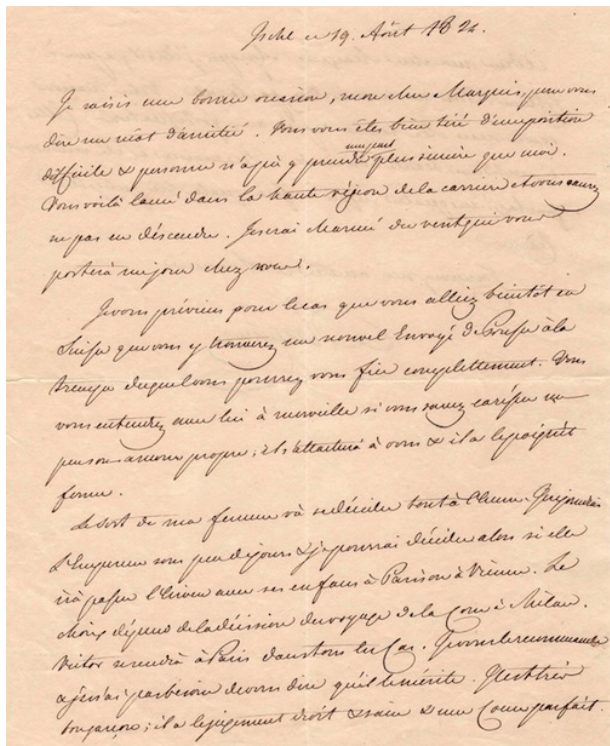 Ischl ce 19. Août 1824.
Je saisis une bonne occasion, mon cher Marquis, pour vous
dire un mot d'amitié. Vous vous êtes bien tiré d'une position
difficile & personne n'a pu y prendre une part plus sincère que moi.
Vous voilà lancé dans la haute région de la carrière et vous saurez
ne pas en déscendre. Je serai charmé du vent qui vous
portera un jour chez nous.
Je vous préviens pour le cas que vous alliez bientôt en
Suisse que vous y trouverez un nouvel Envoyé de Prusse à la
duquel vous pourrez vous fier complettement. Vous
vous entendrez avec lui à merveille si vous savez carésser un
peu son amour propre; il s'attachera à vous & il a le poignet
ferme.
Le sort de ma femme và se décider tout à l'heure. Je joindrai
l'Empereur sous peu de jours & je pourrai décider alors si elle
irà passer l'hiver avec ses enfans à Paris ou à Vienne. Le
choix dépend de la décision du voyage de la Cour à Milan.
Victor se rendrà à Paris dans tous les Cas. Je vous le recommande
& je n'ai pas besoin de vous dire qu'il le mérite. Il est très
bon garçon; il a le jugement droit & sain & un Coeur parfait.